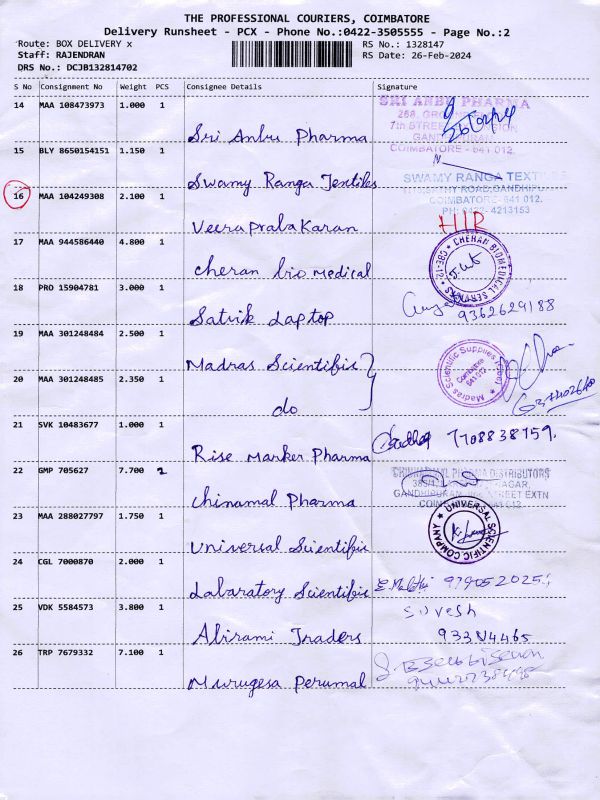 THE PROFESSIONAL COURIERS, COIMBATORE
Delivery Runsheet - PCX - Phone No.:0422-3505555 - Page No.:2
Route: BOX DELIVERY x
RS No.: 1328147
Staff: RAJENDRAN
RS Date: 26-Feb-2024
DRS No.: DCJB132814702
S No Consignment No Weight PCS Consignee Details Signature
14 MAA 108473973 1.000 1
Sri Anbu Pharma
SRI ANBU PHARMA
COIMBATORE - 641 012.
15 BLY 8650154151 1.150 1
Swamy Ranga Textiles
SWAMY RANGA TEXTILES
COIMBATORE-641 012.
PH: 0422-4213153
16 MAA 104249308 2.100 1
Veeraprabakaran
17 MAA 944586440 4.800 1
Cheran bio medical
CHERAN BIOMEDICAL
CBE-12
18 PRO 15904781 3.000 1
Satvik Laptop
9362629188
19 MAA 301248484 2.500 1
Madras Scientific
Madras Scientific Supplies
Coimbatore
641 012
20 MAA 301248485 2.350 1
do
21 SVK 10483677 1.000 1
Rise Marker Pharma
7708838759.
22 GMP 705627 7.700 2
Chinamal Pharma
PHARMA DISTRIBUTORS
23 MAA 288027797 1.750 1
Universal Scientific
UNIVERSAL SCIENTIFIC COMPANY
24 CGL 7000870 2.000 1
Labaratory Scientific
25 VDK 5584573 3.800 1
Abirami Traders
26 TRP 7679332 7.100 1
Murugesa Perumal